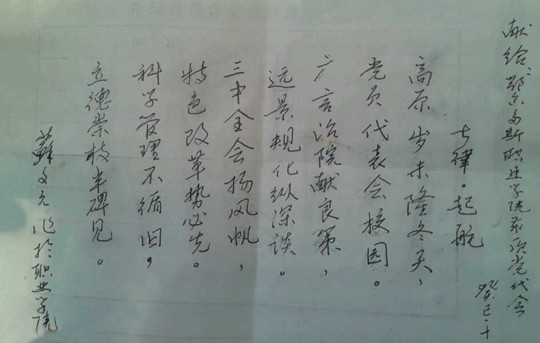 献给鄂尔多斯职业学院首次党代会
癸巳·十
七律·起航
高原岁末隆冬天，
党员代表会校园。
广言治院献良策，
远景规化纵深谈。
三中全会扬风帆，
特色改革势必先。
科学管理不循旧，
立德崇技丰碑见。
苏文光作于职业学院